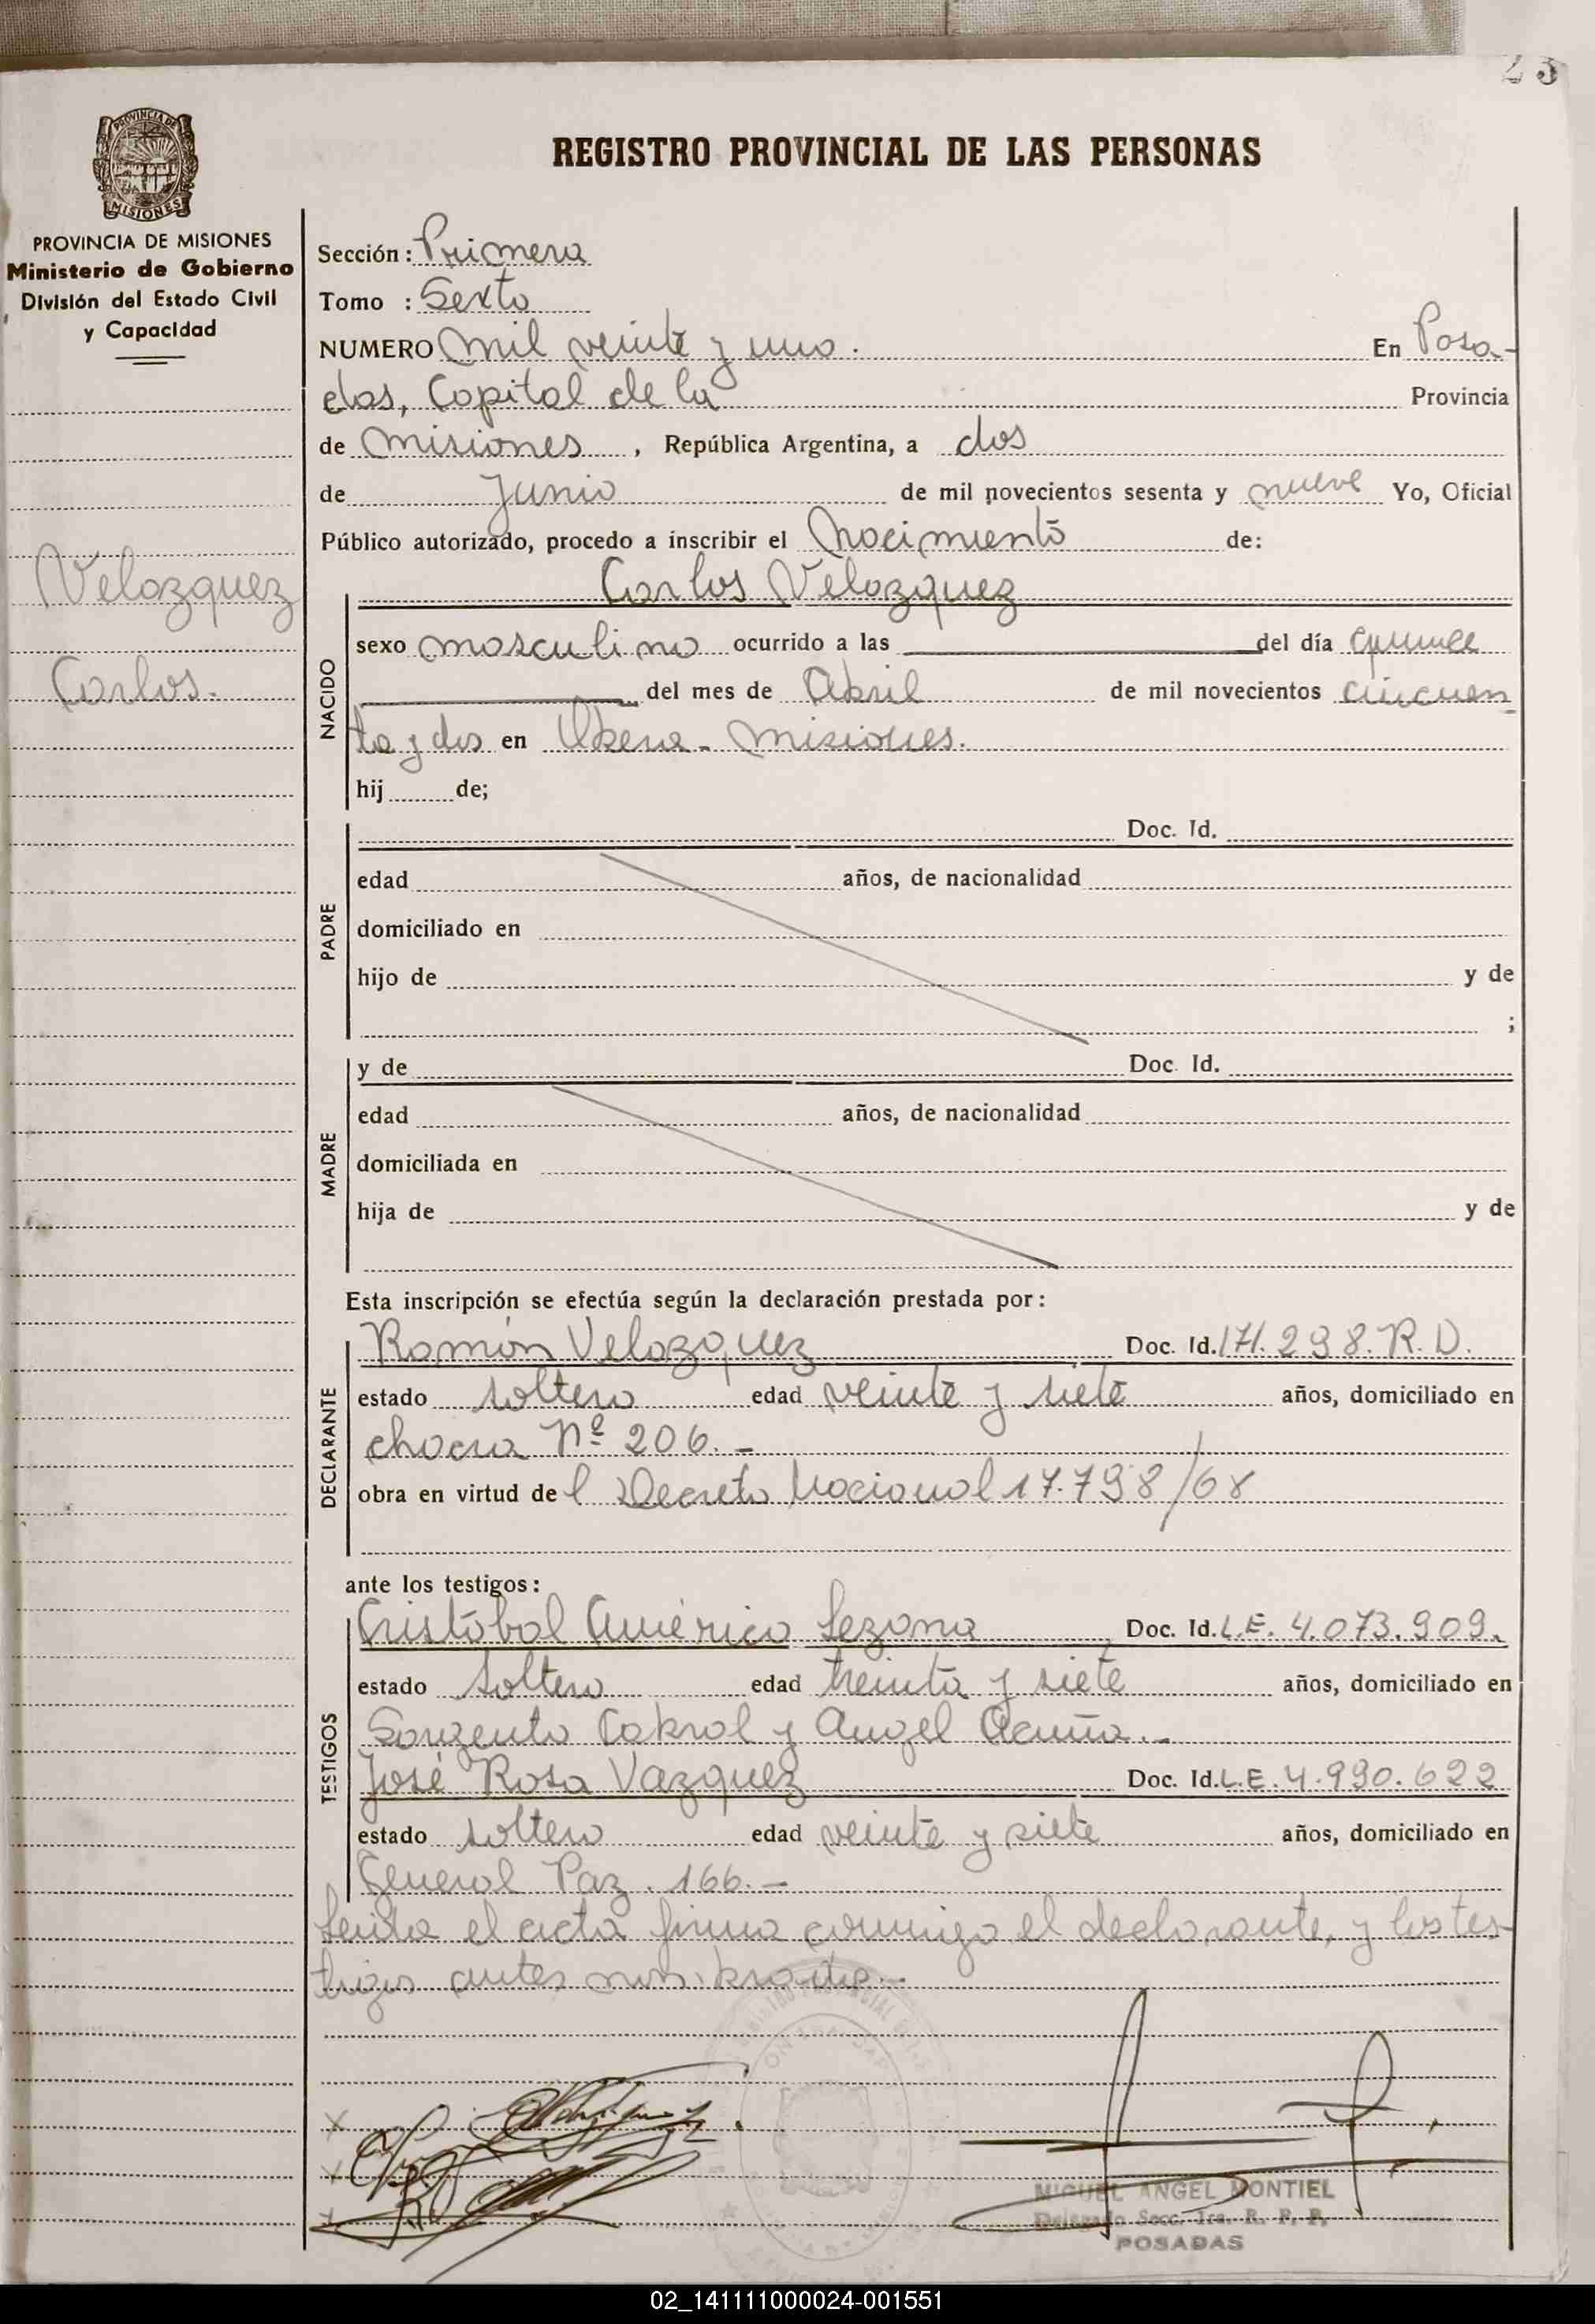 23
PROVINCIA DE
MISIONES
PROVINCIA DE MISIONES
Ministerio de Gobierno
División del Estado Civil
y Capacidad
REGISTRO PROVINCIAL DE LAS PERSONAS
Sección: Primera
Tomo : Sexto
NUMERO mil veinte y uno. En Posa-
das, Capital de la Provincia
de Misiones , República Argentina, a dos
de Junio de mil novecientos sesenta y nueve Yo, Oficial
Público autorizado, procedo a inscribir el Nacimiento de:
Velazquez
Carlos.
NACIDO
Carlos Velazquez
sexo masculino ocurrido a las del día quince
del mes de Abril de mil novecientos cincuen
ta y dos en Obera - Misiones.
hij de;
PADRE
Doc. Id.
edad años, de nacionalidad
domiciliado en
hijo de y de
;
MADRE
y de Doc. Id.
edad años, de nacionalidad
domiciliada en
hija de y de
Esta inscripción se efectúa según la declaración prestada por:
DECLARANTE
Ramón Velazquez Doc. Id. 171.298. R.D.
estado soltero edad veinte y siete años, domiciliado en
chacra Nº 206. -
obra en virtud de l Decreto Nacional 17.798/68
ante los testigos:
TESTIGOS
Cristóbal Américo Lezana Doc. Id. L.E. 4.073.909.
estado soltero edad treinta y siete años, domiciliado en
Sargento Cabral y Angel Acuña.-
José Rosa Vazquez Doc. Id. L.E. 4.990.622
estado soltero edad veinte y siete años, domiciliado en
General Paz. 166.-
Leida el acta firma conmigo el declarante, y los tes-
tigos antes nombrados.-
MIGUEL ANGEL MONTIEL
Delegado Secc. 1ra. R. P. P.
POSADAS
02_141111000024-001551